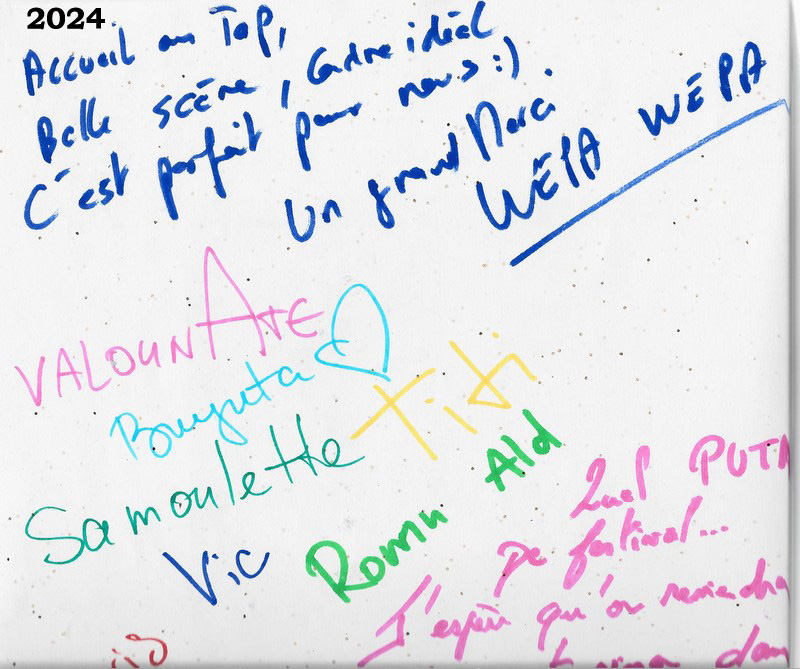 2024
Accueil au Top,
Belle scène, Cadre idéal
C'est parfait pour nous :)
Un grand Merci
WÉPA WÉPA
VALOUNATE
Samoulette
Titi
Ald
Vic
Romu
Quel PUTA
De festival...
J'espère qu'on reviendra